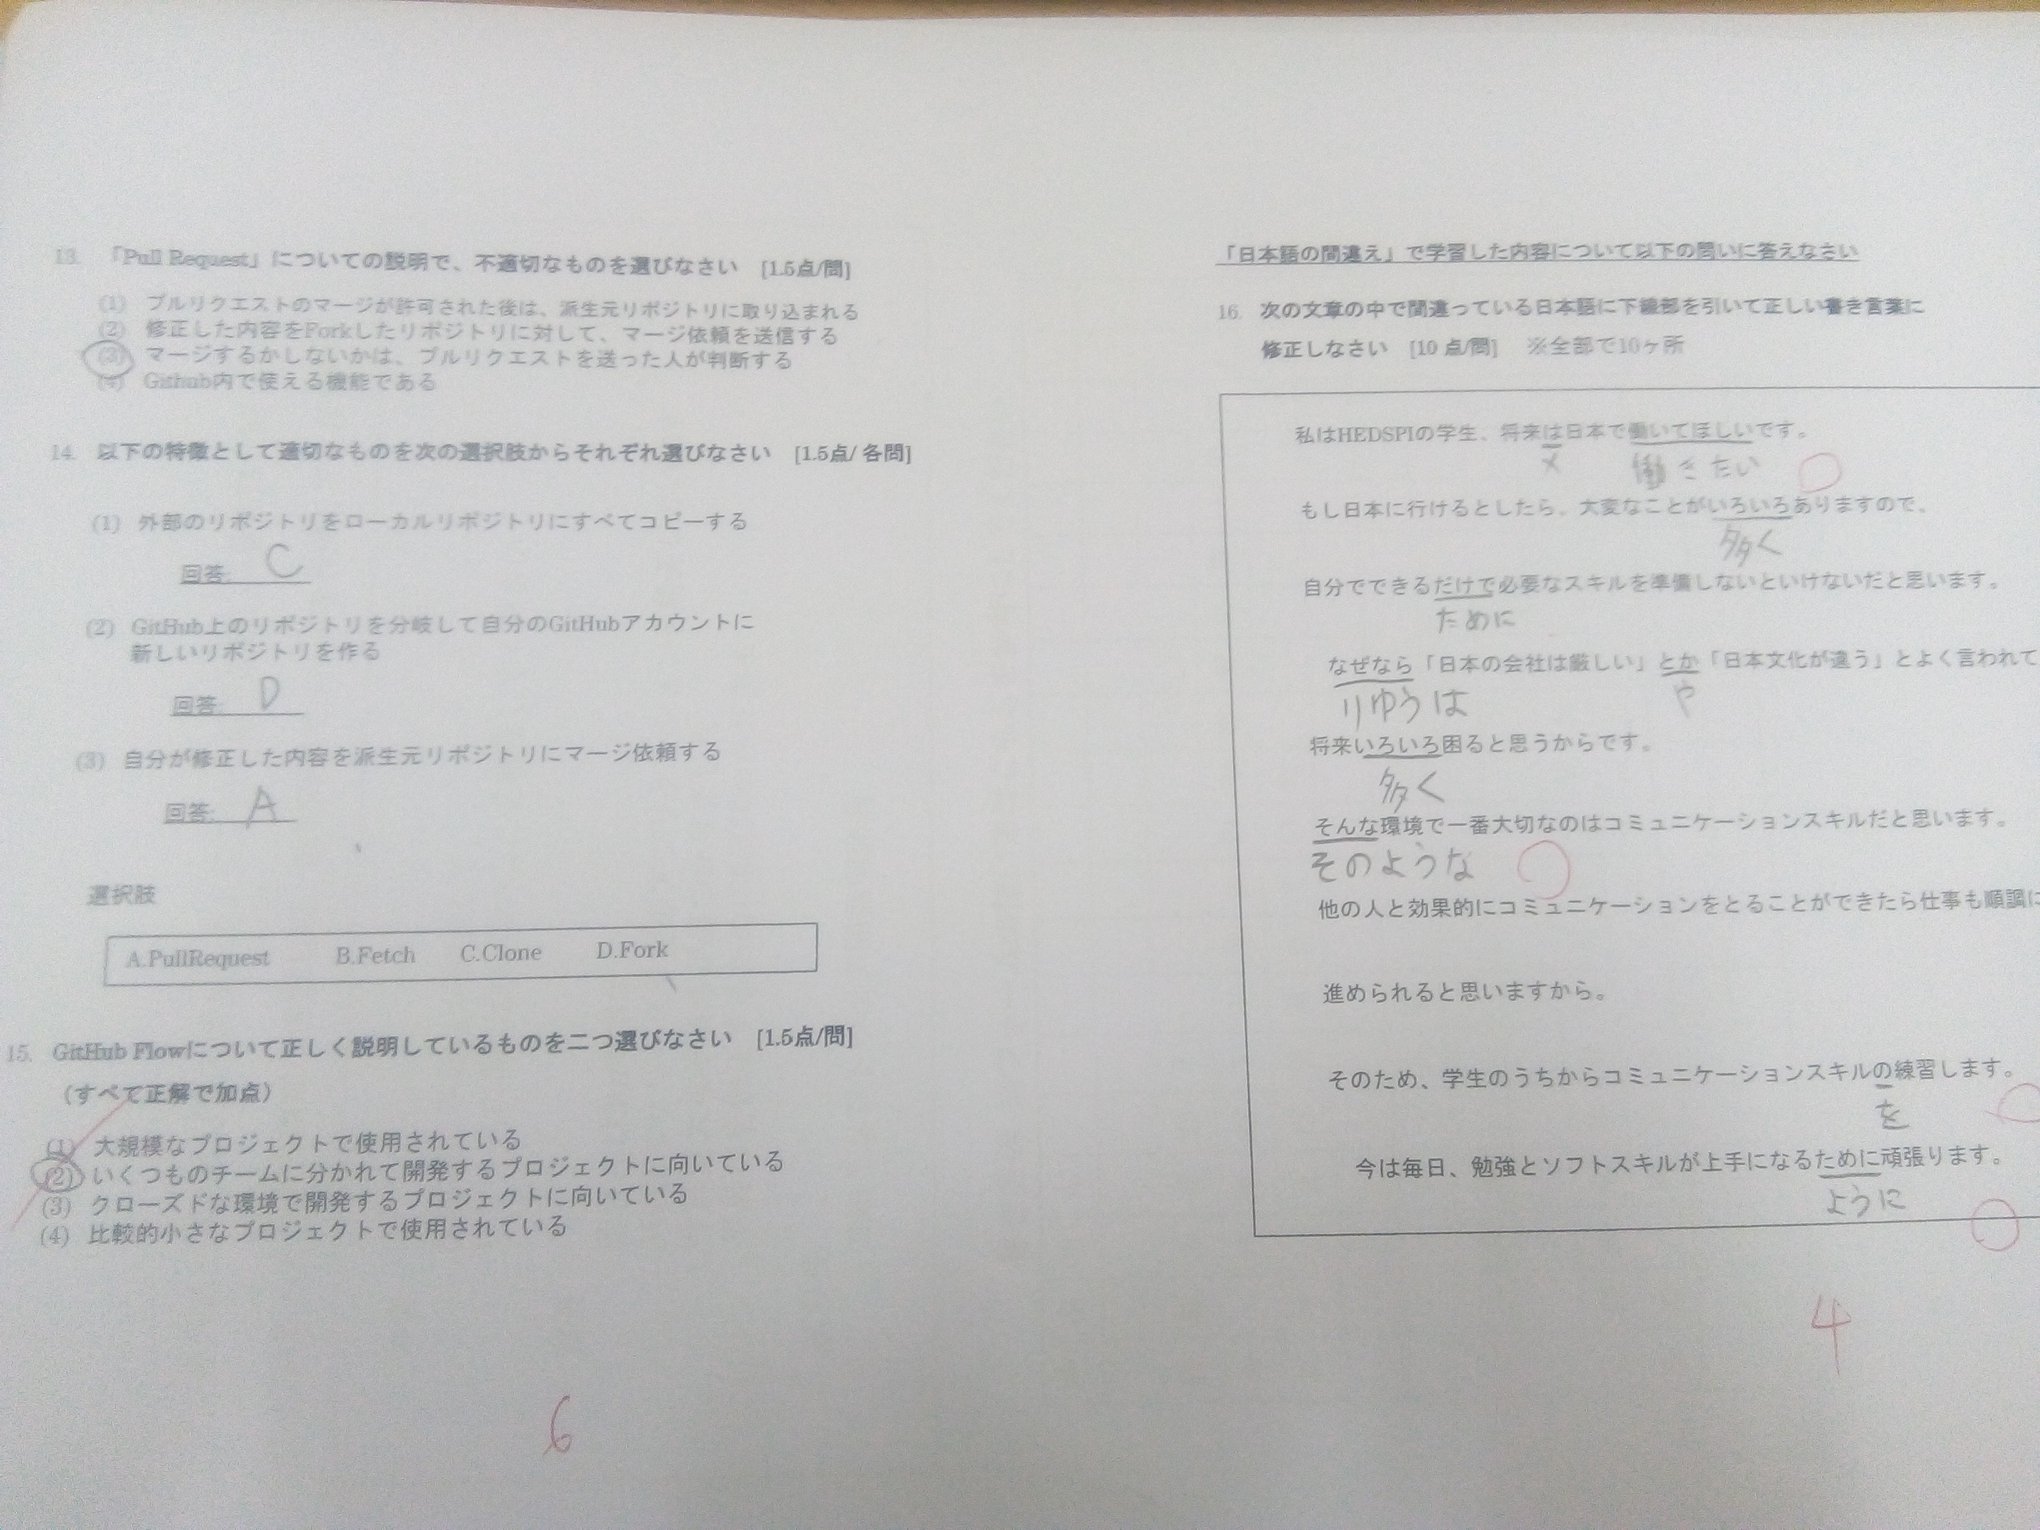 13. 「Pull Request」についての説明で、不適切なものを選びなさい [1.5点/問]
(1) プルリクエストのマージが許可された後は、派生元リポジトリに取り込まれる
(2) 修正した内容をForkしたリポジトリに対して、マージ依頼を送信する
(3) マージするかしないかは、プルリクエストを送った人が判断する
(4) Github内で使える機能である
14. 以下の特徴として適切なものを次の選択肢からそれぞれ選びなさい [1.5点/ 各問]
(1) 外部のリポジトリをローカルリポジトリにすべてコピーする
回答: C
(2) GitHub上のリポジトリを分岐して自分のGitHubアカウントに
新しいリポジトリを作る
回答: D
(3) 自分が修正した内容を派生元リポジトリにマージ依頼する
回答: A
選択肢
A.PullRequest B.Fetch C.Clone D.Fork
15. GitHub Flowについて正しく説明しているものを二つ選びなさい [1.5点/問]
(すべて正解で加点)
(1) 大規模なプロジェクトで使用されている
(2) いくつものチームに分かれて開発するプロジェクトに向いている
(3) クローズドな環境で開発するプロジェクトに向いている
(4) 比較的小さなプロジェクトで使用されている
6
「日本語の間違え」で学習した内容について以下の問いに答えなさい
16. 次の文章の中で間違っている日本語に下線部を引いて正しい書き言葉に
修正しなさい [10 点/問] ※全部で10ヶ所
私はHEDSPIの学生、将来は日本で働いてほしいです。
× 働きたい
もし日本に行けるとしたら、大変なことがいろいろありますので、
多く
自分でできるだけで必要なスキルを準備しないといけないだと思います。
ために
なぜなら「日本の会社は厳しい」とか「日本文化が違う」とよく言われて
りゆうは や
将来いろいろ困ると思うからです。
多く
そんな環境で一番大切なのはコミュニケーションスキルだと思います。
そのような
他の人と効果的にコミュニケーションをとることができたら仕事も順調に
進められると思いますから。
そのため、学生のうちからコミュニケーションスキルの練習します。
を
今は毎日、勉強とソフトスキルが上手になるために頑張ります。
ように
4